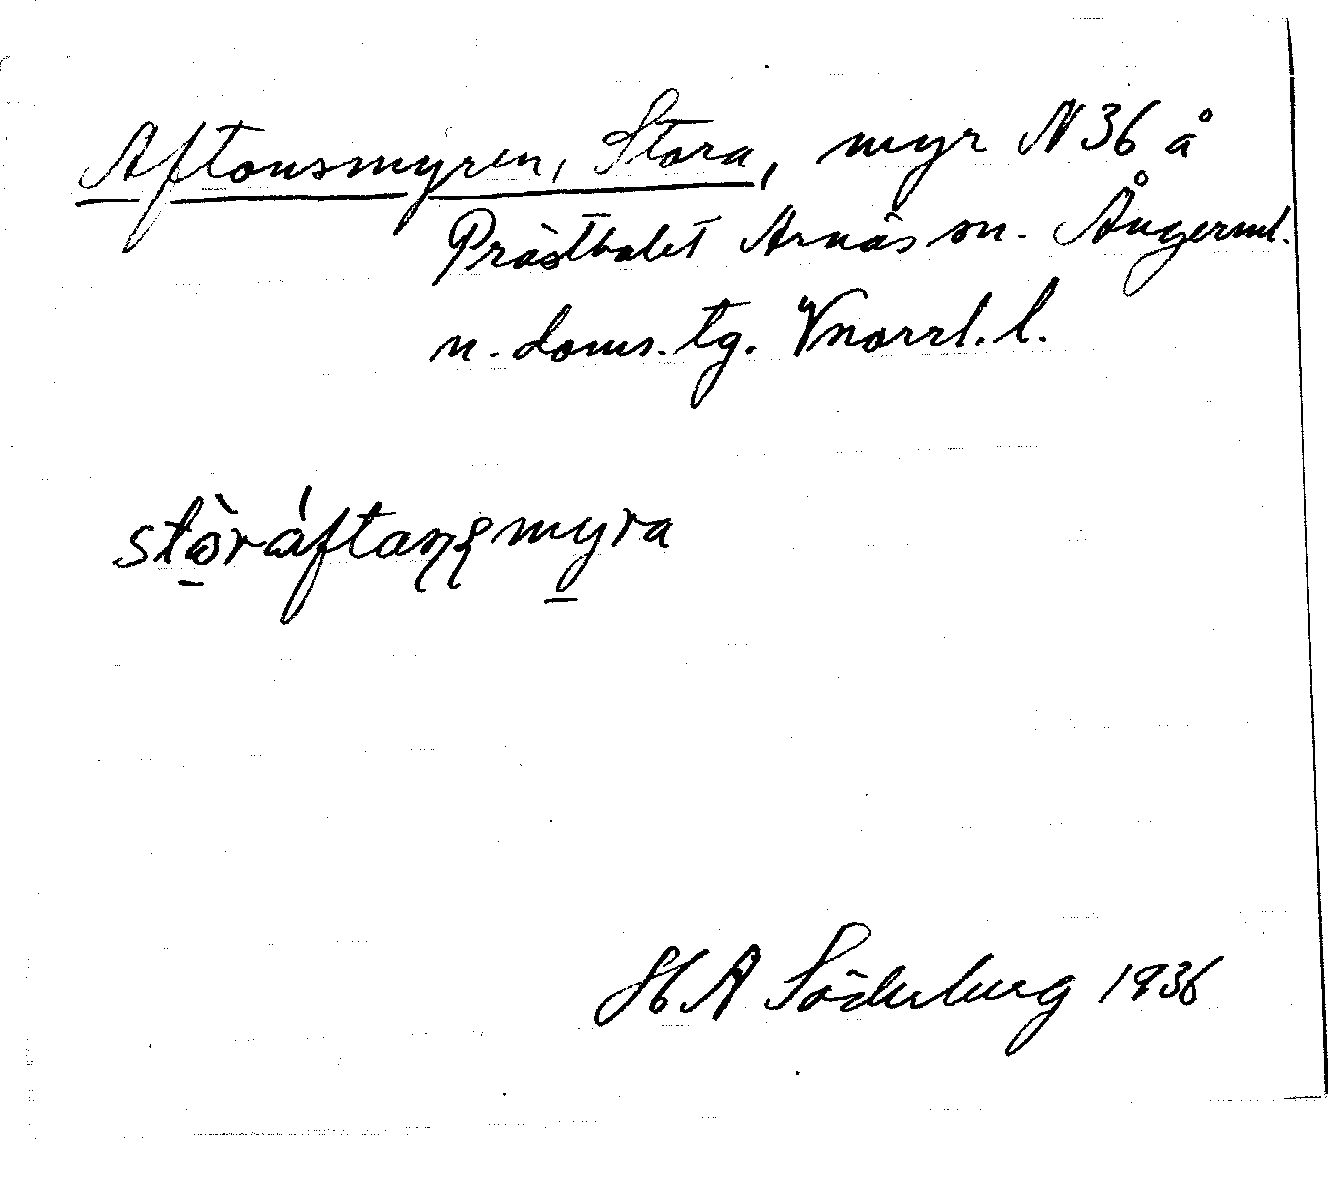 Aftonsmyren, Stora, myr N 36 å
Prästbolet Arnäs sn. Ångerml.
n. doms. tg. Vnorrl. l.
stòráftaꞃꞩmyra
H A Söderberg 1936